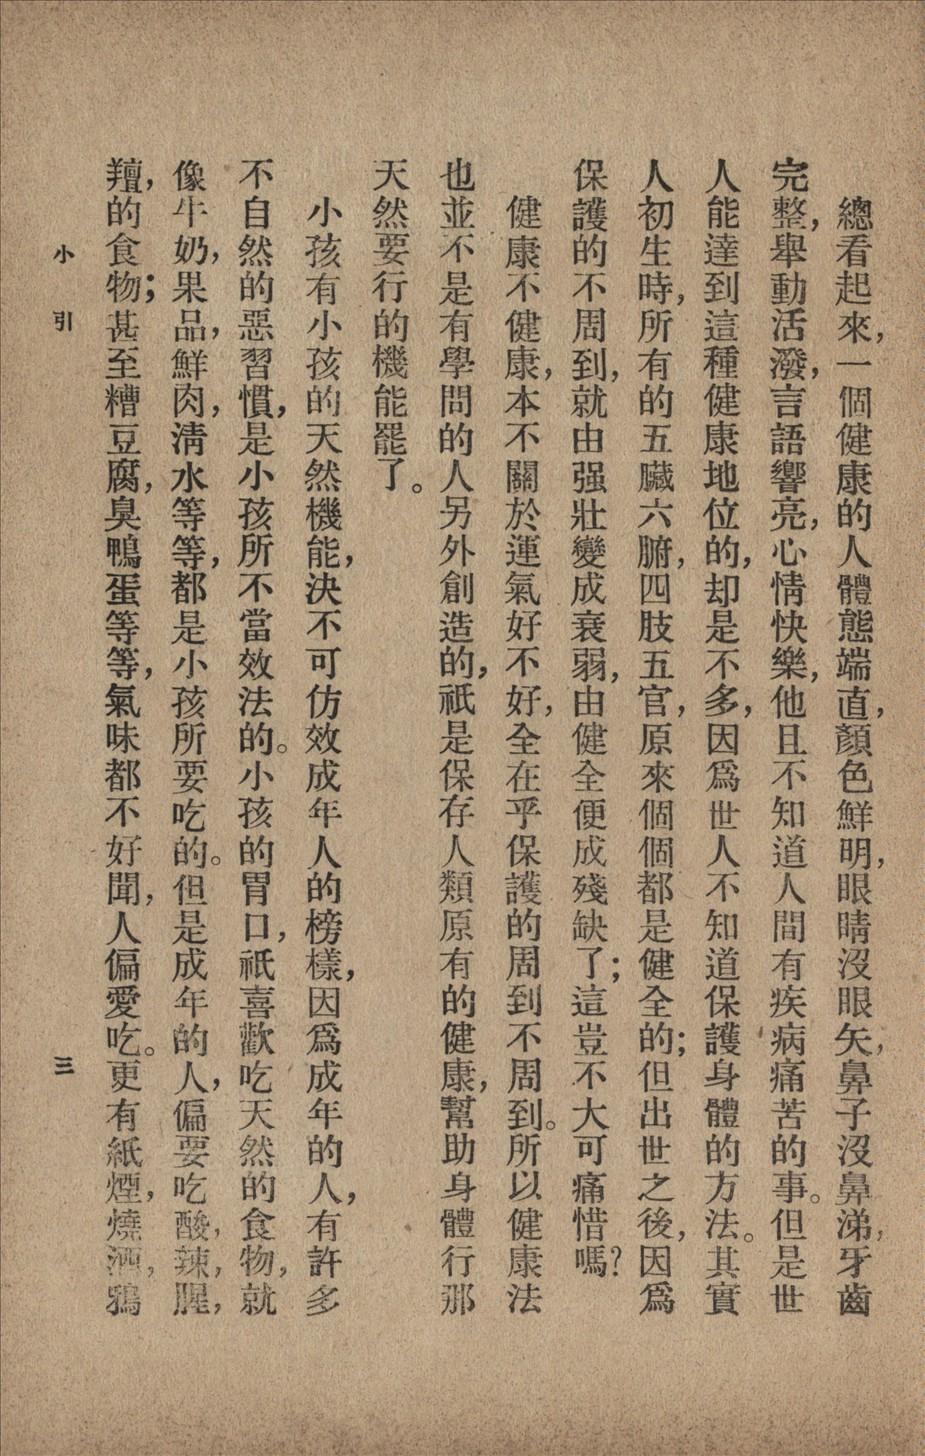 總看起來，一個健康的人體態端直，顏色鮮明，眼睛沒眼矢，鼻子沒鼻涕，牙齒
完整，舉動活潑，言語響亮，心情快樂，他且不知道人間有疾病痛苦的事。但是世
人能達到這種健康地位的，却是不多，因爲世人不知道保護身體的方法。其實
人初生時，所有的五臟六腑，四肢五官，原來個個都是健全的；但出世之後，因爲
保護的不周到，就由强壯變成衰弱，由健全便成殘缺了；這豈不大可痛惜嗎？
健康不健康，本不關於運氣好不好，全在乎保護的周到不周到。所以健康法
也並不是有學問的人另外創造的，祇是保存人類原有的健康，幫助身體行那
天然要行的機能罷了。
小孩有小孩的天然機能，決不可仿效成年人的榜樣，因爲成年的人，有許多
不自然的惡習慣，是小孩所不當效法的。小孩的胃口，祇喜歡吃天然的食物，就
像牛奶，果品，鮮肉，淸水等等，都是小孩所要吃的。但是成年的人，偏要吃酸，辣，腥，
羶，的食物；甚至糟豆腐，臭鴨蛋等等，氣味都不好聞，人偏愛吃。更有紙煙，燒酒，鴉
小引
三